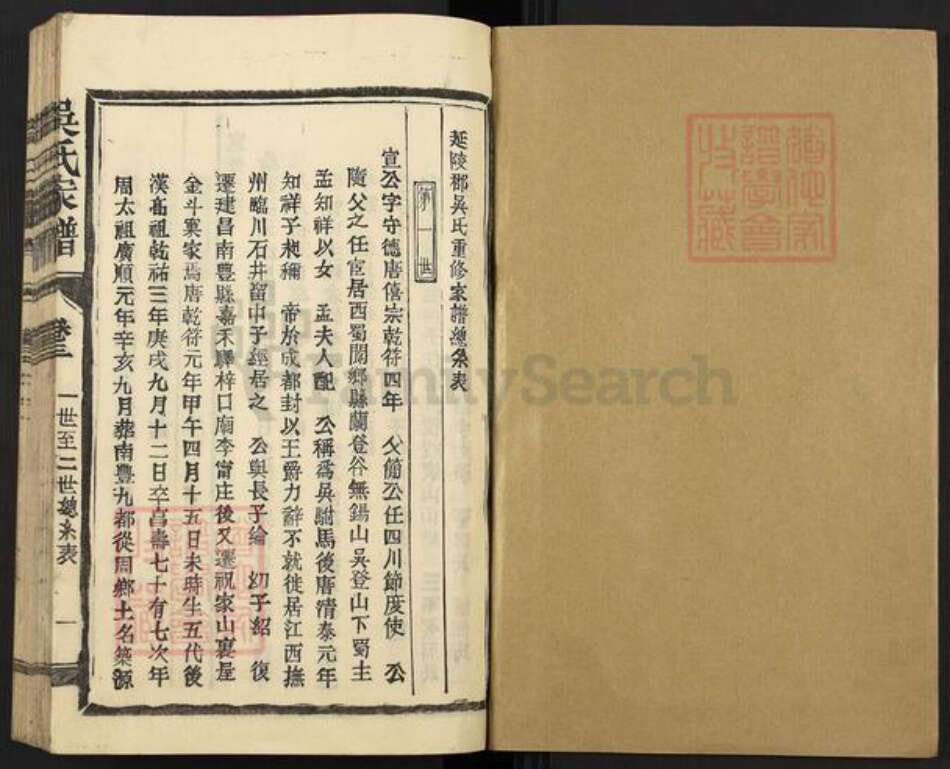 延陵郡吳氏重修家譜總系表
第一世
宣公字守德唐僖宗乾符四年　父簡公任四川節度使　公
隨父之任宦居西蜀閬鄉縣蘭登谷無錫山吳登山下蜀主
孟知祥以女　孟夫人配　公稱為吳駙馬後唐清泰元年
知祥子昶稱　帝於成都封以王爵力辭不就徙居江西撫
州臨川石井留中子經居之　公與長子綸　幼子紹　復
遷建昌南豐縣嘉禾驛梓口廟李甯庄後又遷祝家山裏屋
金斗窠家焉唐乾符元年甲午四月十五日未時生五代後
漢高祖乾祐三年庚戌九月十二日卒富壽七十有七次年
周太祖廣順元年辛亥九月葬南豐九都從周鄉土名築源
吳氏家譜
卷三
一世至二世總系表
一
FamilySearch